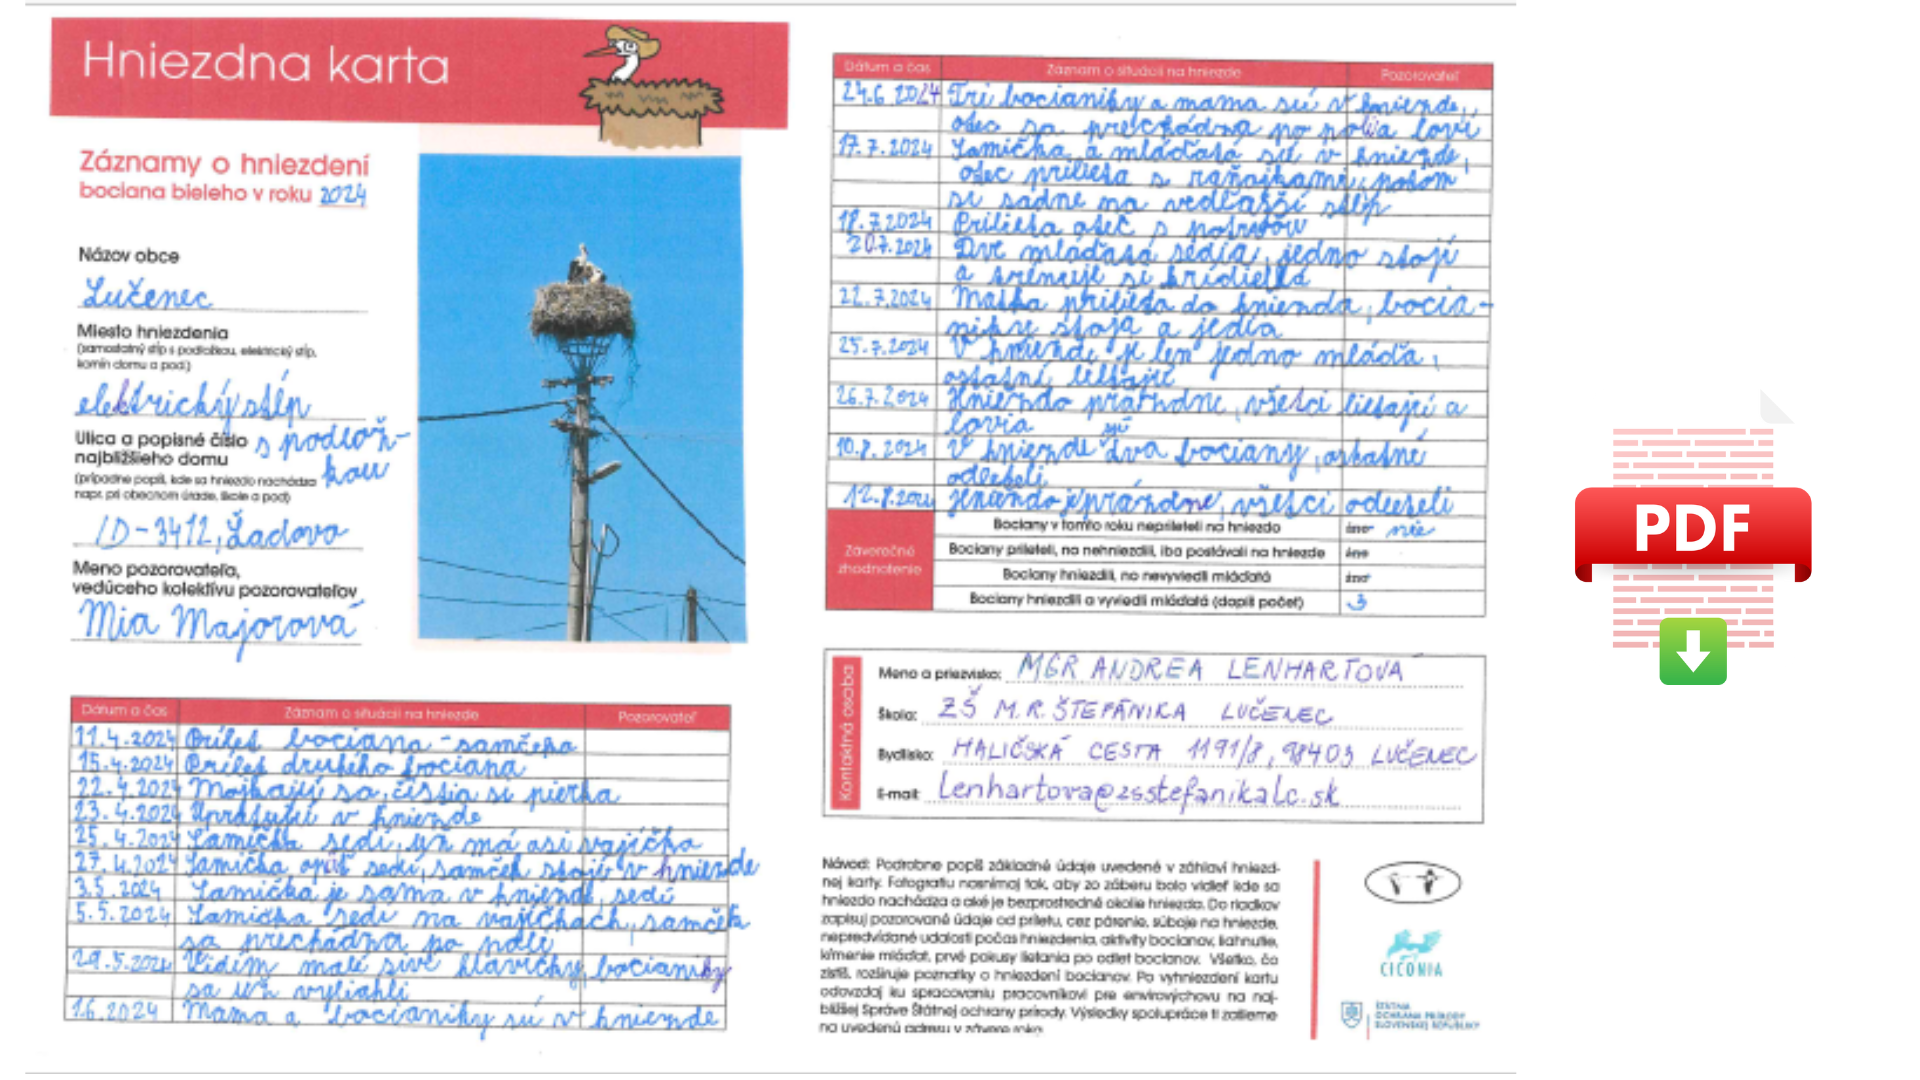 Hniezdna karta
Záznamy o hniezdení
bociana bieleho v roku 2024
Názov obce
Lučenec
Miesto hniezdenia
(samostatný stĺp s podložkou, elektrický stĺp,
komín domu a pod.)
elektrický stĺp
Ulica a popisné číslo s podlož-
najbližšieho domu
kou
(prípadne popíš, kde sa hniezdo nachádza
napr. pri obecnom úrade, škole a pod)
ID-3412, Ľadova
Meno pozorovateľa,
vedúceho kolektívu pozorovateľov
Mia Majorová
Dátum a čas Záznam o situácii na hniezde Pozorovateľ
11.4.2024 Prílet bociana - samčeka
15.4.2024 Prílet druhého bociana
22.4.2024 Mojkajú sa, čistia si pierka
23.4.2024 Upratujú v hniezde
25.4.2024 Samička sedí, už má asi vajíčka
27.4.2024 Samička opäť sedí, samček stojí v hniezde
3.5.2024 Samička je sama v hniezde, sedí
5.5.2024 Samička sedí na vajíčkach, samček
sa prechádza po poli
29.5.2024 Vidím malé sivé hlavičky, bocianiky
sa už vyliahli
1.6.2024 Mama a bocianiky sú v hniezde
Dátum a čas Záznam o situácii na hniezde Pozorovateľ
24.6.2024 Tri bocianiky a mama sú v hniezde,
otec sa prechádza po poli a loví
17.7.2024 Samička a mláďatá sú v hniezde,
otec prilieta s raňajkami, potom
si sadne na vedľajší stĺp
18.7.2024 Prilieta otec s potravou
20.7.2024 Dve mláďatá sedia, jedno stojí
a trénuje si krídielka
22.7.2024 Matka prilieta do hniezda, bocia-
niky stoja a jedia
25.7.2024 V hniezde je len jedno mláďa,
ostatní lietajú
26.7.2024 Hniezdo prázdne, všetci lietajú a
lovia
10.8.2024 V hniezde sú dva bociany, ostatné
odleteli
12.8.2024 Hniezdo je prázdne, všetci odleteli
Záverečné
zhodnotenie
Bociany v tomto roku neprileteli na hniezdo áno nie
Bociany prileteli, no nehniezdili, iba postávali na hniezde áno
Bociany hniezdili, no nevyviedli mláďatá áno
Bociany hniezdili a vyviedli mláďatá (dopíš počet) 3
Kontaktná osoba
Meno a priezvisko: MGR ANDREA LENHARTOVÁ
Škola: ZŠ M.R. ŠTEFÁNIKA LUČENEC
Bydlisko: HALIČSKÁ CESTA 1191/8, 98403 LUČENEC
E-mail: lenhartova@zsstefanikalc.sk
Návod: Podrobne popíš základné údaje uvedené v záhlaví hniezd-
nej karty. Fotografiu nasnímaj tak, aby zo záberu bolo vidieť kde sa
hniezdo nachádza a aké je bezprostredné okolie hniezda. Do riadkov
zapisuj pozorované údaje od príletu, cez párenie, súboje na hniezde,
nepredvídané udalosti počas hniezdenia, aktivity bocianov, liahnutie,
kŕmenie mláďat, prvé pokusy lietania po odlet bocianov. Všetko, čo
zistíš, rozširuje poznatky o hniezdení bocianov. Po vyhniezdení kartu
odovzdaj ku spracovaniu pracovníkovi pre envirovýchovu na naj-
bližšej Správe Štátnej ochrany prírody. Výsledky spolupráce ti zašleme
na uvedenú adresu v závere roka.
CICONIA
ŠTÁTNA
OCHRANA PRÍRODY
SLOVENSKEJ REPUBLIKY
PDF